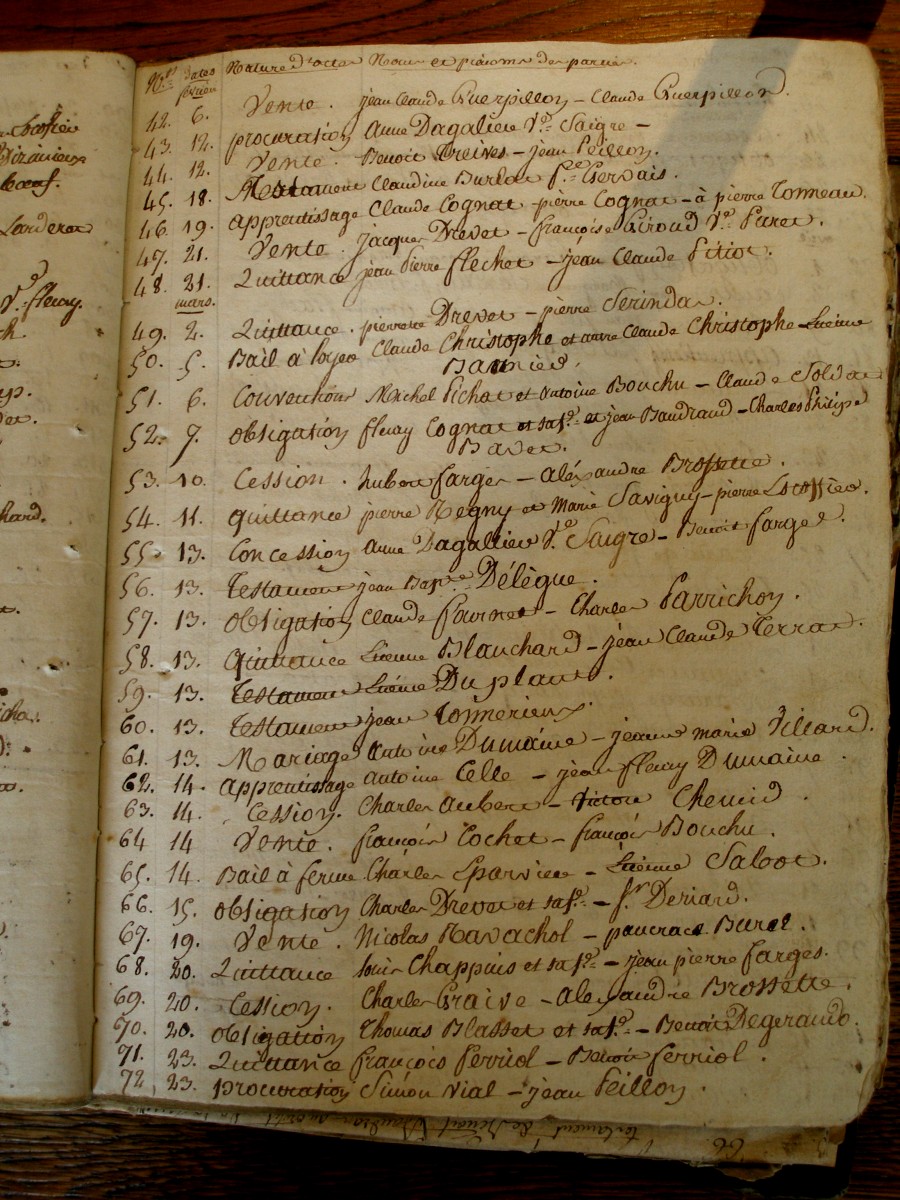 chasseing
boeuf.
Larderet
Ve fleury.
hard.
Nos dates Nature d'actes Noms et prénoms des parties.
février
42. 6. Vente. jean Claude Guerpillon – Claude Guerpillon.
43. 12. procuration Anne Dagallier Ve. Saigre –
44. 12. Vente. Benoit Treives – jean Peillon.
45. 18. Testament Claudine Burlat fe. Gervais.
46. 19. apprentissage Claude Cognat – pierre Cognat – à pierre Tonneau.
47. 21. Vente. jacques Drevet – françoise Giroud Ve. Puret.
48. 21. Quittance jean Pierre flechet – jean Claude Pitiot.
mars.
49. 2. Quittance. pierrette Drevet – pierre Serindat.
50. 5. Bail à loyer Claude Christophe et autre Claude Christophe – Etienne
Bannier.
51. 6. Convention Michel Pichat et Antoine Bouchu – Claude Soldat
52. 7. obligation fleury Cognat et safe. et jean Baudrand – Charles Philipe
Bavet.
53. 10. Cession. hubert farges – aléxandre Brossette.
54. 11. quittance pierre Regny et Marie Savigny – pierre
55. 13. Concession Anne Dagallier Ve. Saigre – Benoit farges.
56. 13. Testament jean Bapte. Délègue.
57. 13. obligation Claude fournet – Charles Parrichon.
58. 13. quittance Etienne Blanchard – jean Claude Terrat.
59. 13. Testament Etienne Duplant.
60. 13. Testament jean Tonnerieux.
61. 13. Mariage Antoine Dumaine – jeanne marie Villard.
62. 14. apprentissage antoine Celle – jean fleury Dumaine.
63. 14. Cession. Charles aubert – Victoire Chemid.
64 14 Vente. françois Cochet – françois Bouchu.
65. 14. Bail à ferme Charles Eparvier – Etienne Sabot.
66. 15. obligation Charles Drevet et safe. – fr. Deriard.
67. 19. Vente. Nicolas Ravachol – pancrace Burel.
68. 20. Quittance louis Chappuis et safe. – jean pierre farges.
69. 20. Cession. Charles Graive – Alexandre Brossette.
70. 20. obligation Thomas Blasset et safe. – Benoit Degerando.
71. 23. Quittance françois ferriol – Benoit ferriol.
72 23. procuration Simon Vial – jean Peillon.
66